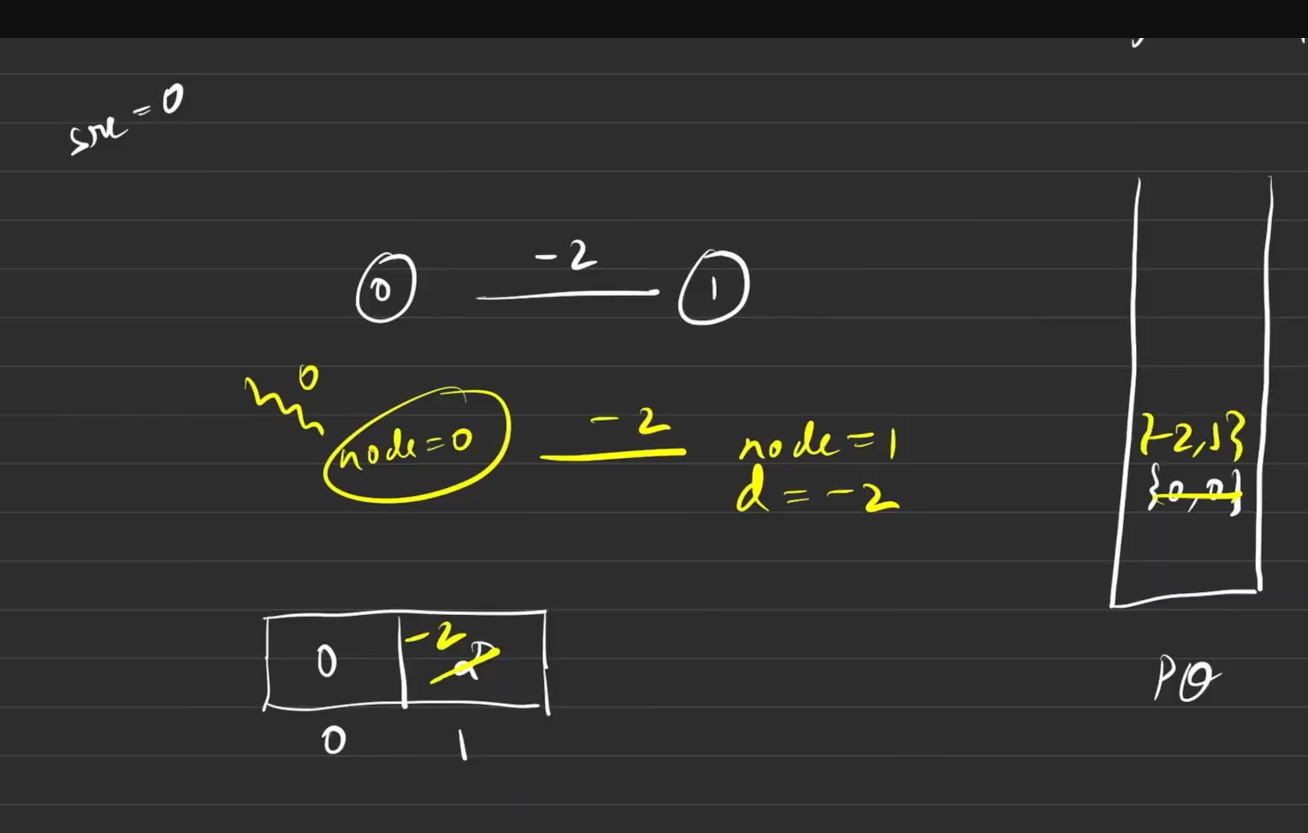 src = 0
-2
0 1
0
node=0 -2 node = 1
d = -2
{-2,1}
{0,0}
0 -2
0 1
PQ